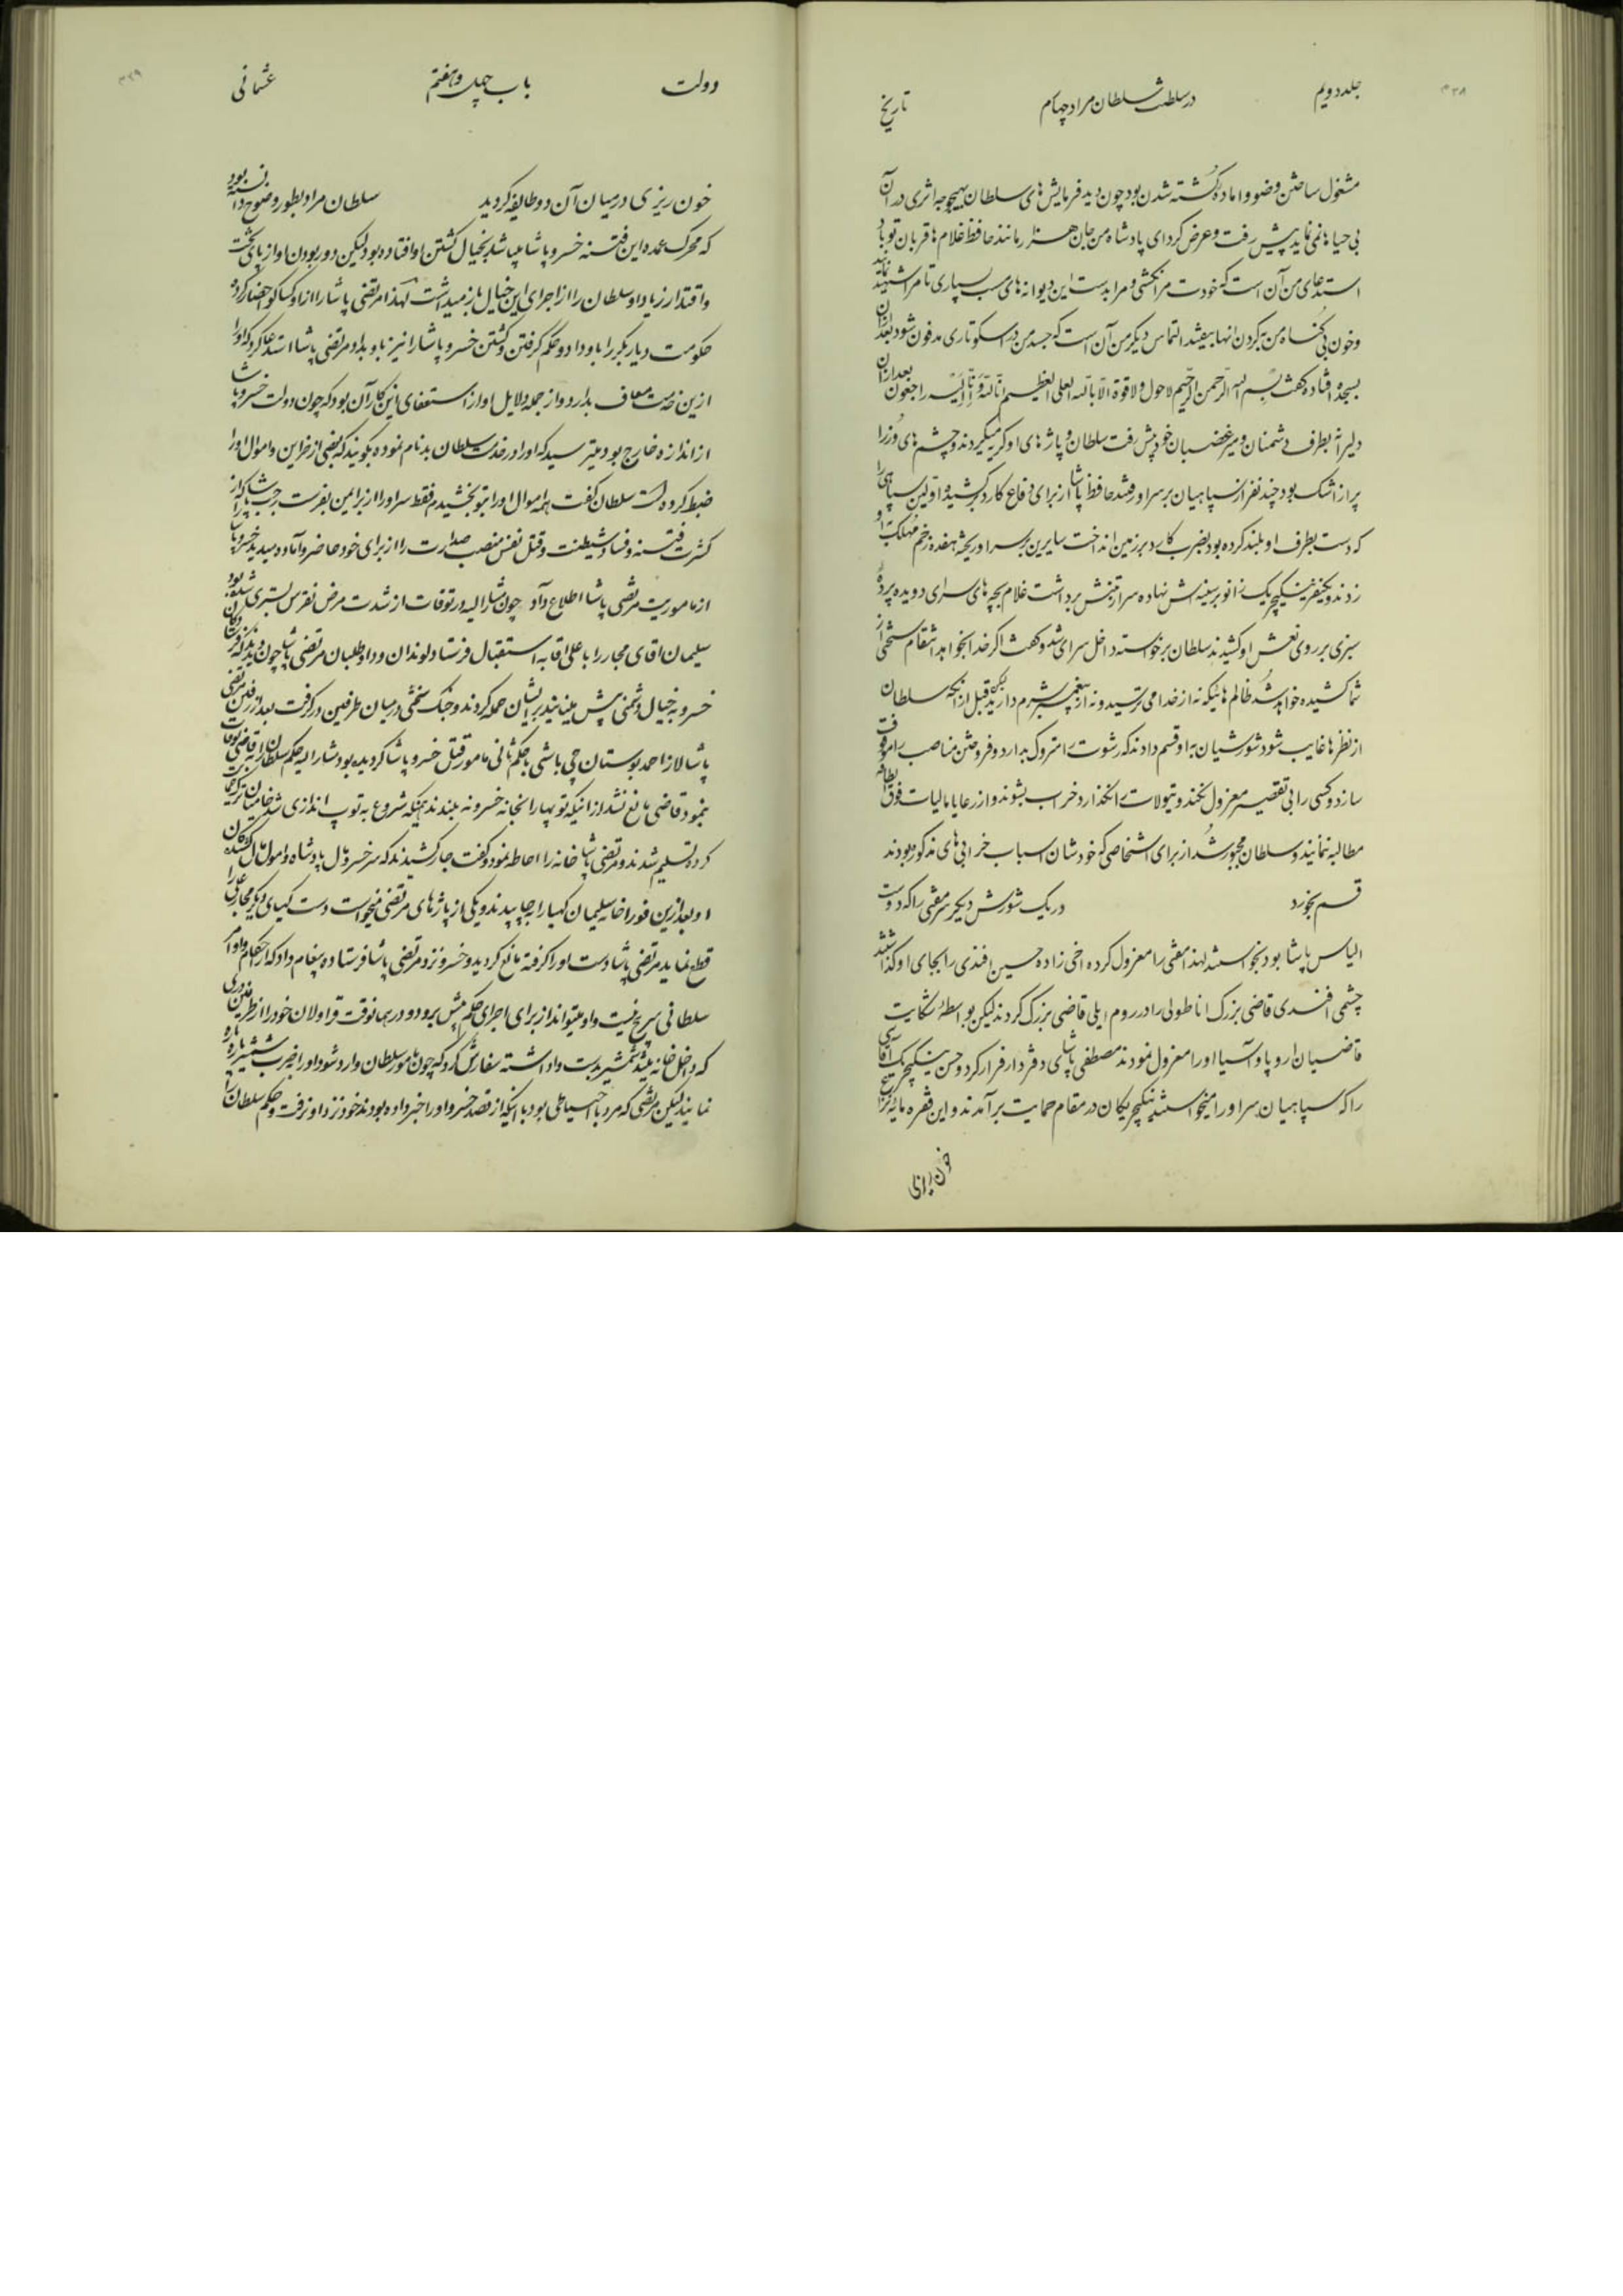 ۴۳۸
جلد دویم
در سلطنت سلطان مراد چهارم
تاریخ
مشغول ساختن وضو و اماده کشته شدن بود چون دید فرمایش های سلطان بهیچوجه اثری در آن
بی حیاها نمی نماید پیش رفت و عرض کرد ای پادشاه من جان هزار مانند حافظ غلام ها قربان تو باد
استدعای من آن است که خودت مرا نکشی و مرا بدست این دیوانه های مسپاری تا مرا شهید نمایند
و خون بی گناه من بگردن انها بیفتد التماس دیگر من آن است که جسد من در اسکوتاری مدفون شود بعد از آن
بسجده افتاده گفت بسم الله الرحمن الرحیم لاحول ولاقوة الا بالله العلی العظیم انا لله و انا الیه راجعون بعد از آن
دلیرانه بطرف دشمنان و میرغضبان خود پیش رفت سلطان و پاژهای او گریه میکردند و چشم های وزرا
پر از اشک بود چند نفر از سپاهیان بر سر او رفتند حافظ پاشا از برای دفاع کارد کشیده اولین سپاهی را
که دست بطرف او بلند کرده بود بضرب کارد بر زمین انداخت سایرین بر سر او ریخته هفده زخم مهلک به او
زدند و یکنفر ینگیچری یک زانو بر سینه اش نهاده سر از تنش برداشت غلام بچه های سرای دویده پرده
سبزی بر روی نعش او کشیدند سلطان برخواسته داخل سرای شد و گفت اگر خدا بخواهد انتقام سختی از
شما کشیده خواهد شد ظالم هائیکه نه از خدا می ترسید و نه از پیغمبر شرم دارید لیکن قبل از انکه سلطان
از نظرها غایب شود شورشیان به او قسم دادند که رشوت را متروک بدارد و فروختن مناصب را موقوف
سازد و کسی را بی تقصیر معزول نکند و تیولات را نگذارد خراب بشوند و از رعایا مالیات فوق الطاقه
مطالبه ننمایند و سلطان مجبور شد از برای اشخاصی که خودشان اسباب خرابی های مذکور بودند
قسم بخورد در یک شورش دیگر سر مفتی را که دوست
الیاس پاشا بود بخواستند لهذا مفتی را معزول کرده اخی زاده حسین افندی را بجای او گذاشتند
چشمی افندی قاضی بزرگ اناطولی را در روم ایلی قاضی بزرگ کردند لیکن بواسطه شکایت
قاضیان اروپا و آسیا او را معزول نمودند مصطفی پاشای دفتردار فرار کرد و حسن ینگیچری آقاسی
را که سپاهیان سر او را میخواستند ینگیچریکان در مقام حمایت برآمدند و این فقره مایه نزاع
خون ریزی
دولت
باب چهل و هفتم
عثمانی
۴۳۹
خون ریزی در میان آن دو طایفه گردید سلطان مراد بطور وضوح دانسته بود
که محرک عمده این فتنه خسرو پاشا میباشد بخیال کشتن او افتاده بود لیکن دور بودن او از پای تخت
و اقتدار زیاد او سلطان را از اجرای این خیال باز میداشت لهذا مرتضی پاشا را از اوکساکو احضار کرده
حکومت دیاربکر را باو داد و حکم گرفتن و کشتن خسرو پاشا را نیز باو بداد مرتضی پاشا استدعا کرد که او را
ازین خدمت معاف بدارد و از جمله دلایل او از استعفای این کار آن بود که چون دولت خسرو پاشا
از اندازه خارج بود میترسید که او را در خدمت سلطان بدنام نموده بگویند که بعضی از خزاین و اموال او را
ضبط کرده است سلطان گفت همه اموال او را بتو بخشیدم فقط سر او را از برای من بفرست رجب پاشا که از
کثرت فتنه و فساد و شیطنت و قتل نفس منصب صدارت را از برای خود حاضر و آماده میدید خسرو پاشا را
از ماموریت مرتضی پاشا اطلاع داد چون مشارالیه در توقات از شدت مرض نقرس بستری شده بود
سلیمان اقای مجار را با علی اقا به استقبال فرستاد لوندان و داوطلبان مرتضی پاشا چون دیدند که
خسرو به خیال دشمنی پیش میایند بر ایشان حمله کردند و جنگ سختی در میان طرفین درگرفت بعد از رفتن مرتضی
پاشا لاز احمد بوستان چی باشی با حکم ثانی مامور قتل خسرو پاشا گردیده بود مشارالیه حکم سلطان را به قاضی توقات
بنمود قاضی مانع نشد از انیکه توپها را بخانه خسرو نه ببندند همینکه شروع به توپ اندازی شد
کرده تسلیم شدند و مرتضی پاشا خانه را احاطه نمود و گفت جار کشیدند که سر خسرو مال پادشاه و اموال مال کشندگان
او بعد ازین فورا خانه سلیمان کهیا را به چاپیدند و یکی از پاژهای مرتضی میخواست دست کهیای دیگر مجار علی را
قطع نماید مرتضی پاشا دست او را گرفته مانع گردید و خسرو نزد مرتضی پاشا فرستاده پیغام داد که از احکام و اوامر
سلطانی سر پیچ نیست و او میتواند از برای اجرای حکم پیش برود و در همان وقت قراولان خود را
که داخل خانه بیند شمشیر بدست واداشته سفارش کرد که چون مامور سلطان وارد شود او را بضرب شمشیر پاره پاره
نمایند لیکن مرتضی که مرد با احتیاطی بود با انیکه از قصد خسرو او را خبر داده بودند خود نزد او نرفت و حکم سلطان را